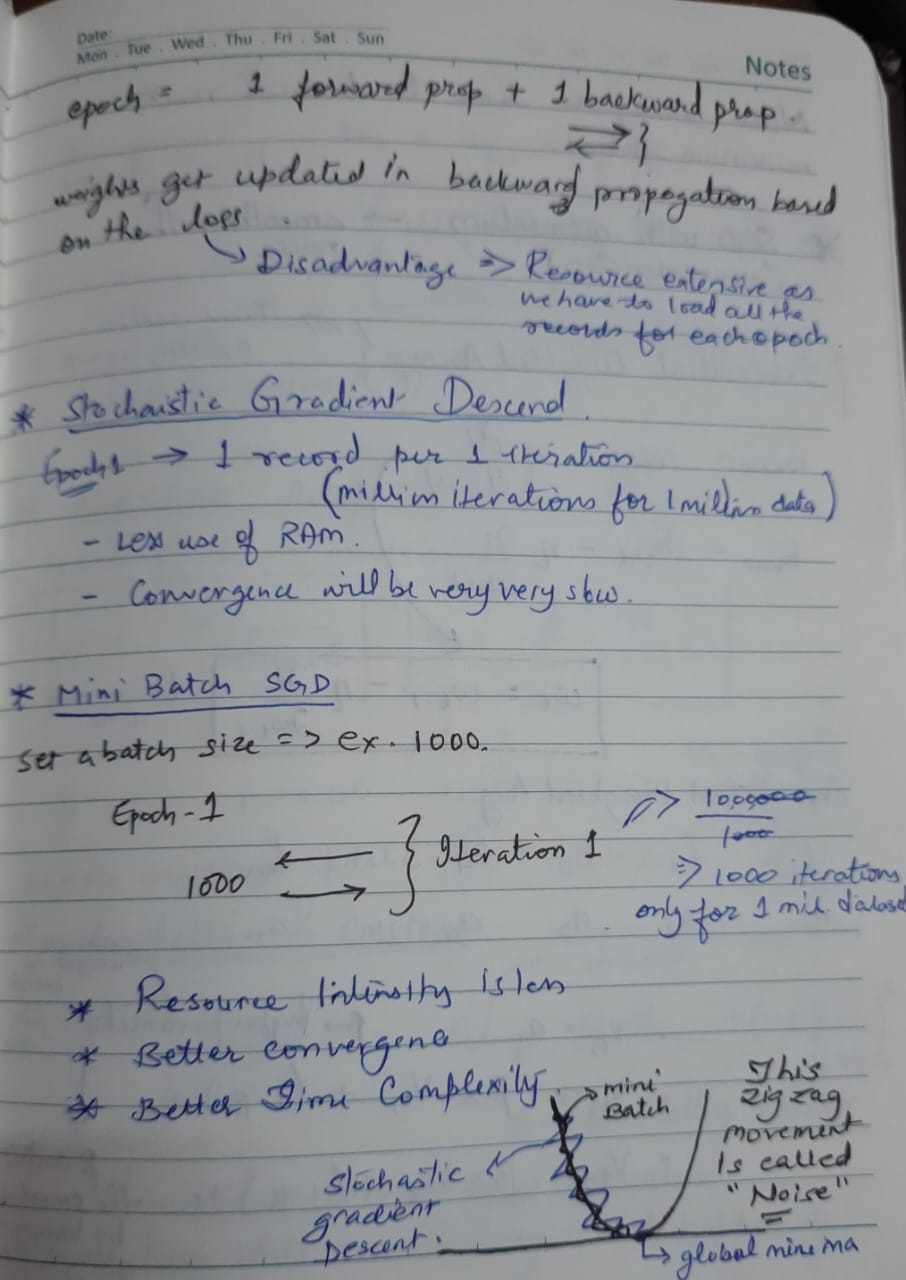 Date:
Mon . Tue . Wed . Thu . Fri . Sat . Sun
Notes
epoch = 1 forward prop + 1 backward prop.
⇄ }
weights get updated in backward propogation based
on the loss.
↳ Disadvantage => Resource extensive as
we have to load all the
records for each epoch.
* Stochaistic Gradient Descend.
Epoch 1 → 1 record per 1 iteration
(million iterations for 1 million data)
- Less use of RAM.
- Convergence will be very very slow.
* Mini Batch SGD
Set a batch size => ex. 1000.
Epoch - 1
1000 ← → } Iteration 1
=> 1000000
1000
=> 1000 iterations
only for 1 mil. dataset
* Resource Intensity is less
* Better convergence
* Better Time Complexity.
mini Batch
This
zig zag
movement
is called
"Noise"
Stochastic
gradient
Descent.
↳ global minima